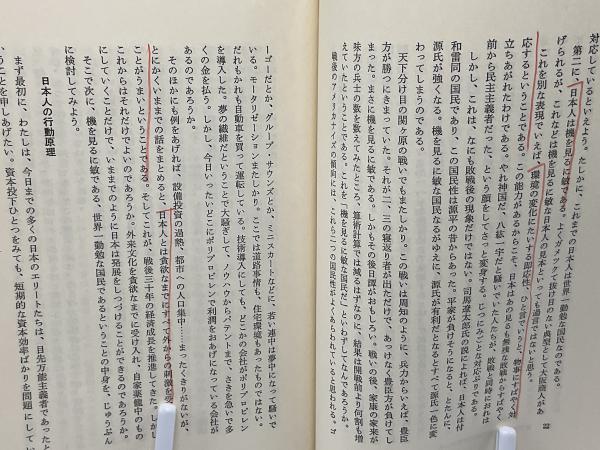 対応しているといえよう。たしかに、これまでの日本人は世界一勤勉な国民なのである。
第二に、「日本人は機を見るに敏である。よくガメツクて抜け目のない典型として大阪商人があ
げられるが、これなどは機を見るに敏な日本人の見本といっても過言ではないと思う。
これを別な表現でいえば、「環境の変化にたいする即応性」、ひと言でいうと、物事にすばやく対
応するということである。この能力があるからこそ、日本はあの見るも無残な敗戦からすばやく
立ちあがれたわけである。やれ神国だ、八紘一宇だと騒いでいた人たちが、敗戦と同時におれは
前から民主主義者だった、という顔をしてさっと変身する。じつにみごとな対応ぶりである。
しかし、これは、なにも敗戦後の現象だけではない。司馬遼太郎氏の説によれば、日本人は付
和雷同の国民であり、この国民性は源平の昔からのことである。平家が負けそうになると、とたんに、
源氏が強くなる。機を見るに敏な国民なるがゆえに、源氏が有利だとなるとすべて源氏一色に変
わってしまうのである。
天下分け目の関ヶ原の戦いでもまたしかり。この戦いは周知のように、兵力からいえば、豊臣
方が勝つにきまっていた。それが二、三の寝返り者が出ただけで、あっけなく豊臣方が負けてし
まった。まさに機を見るに敏である。しかもその後日譚がおもしろい。戦いの後、家康の来家が
味方の兵士の数を数えてみたところ、算術計算では減るはずなのに、結果は開戦前より何割も増
えていたということである。これを「機を見るに敏な国民だ」といわずしてなんであろうか。
戦後のアメリカナイズの傾向には、これら二つの国民性がよくあらわれていると思われる。ゴ
22
ーゴーだとか、グループ・サウンズとか、ミニスカートなどに、若い連中は夢中になって騒いで
いる。モータリゼーションまたしかり。ここでは道路事情も、住宅環境もあったものではない。
だれもかれも自動車を買って運転している。技術導入にしても、どこかの会社がポリプロピレン
を導入した。夢の繊維だということで大騒ぎして、ノウハウからパテントまで、さきを急いで多
くの金を払う。しかし、今日いったいどこにポリプロピレンで利潤をおあげになっている会社が
あるのであろうか。
そのほかにも例をあげれば、設備投資の過熱、都市への人口集中……まったくきりがないが、
とにかくいままでの話をまとめると、日本人とは貪欲なまでにすべて外からの刺激を受
ことがうまいということである。そしてこれが、戦後三十年の経済成長を推進してきた。しかし
これからはそれだけでよいのであろうか。外来文化を貪欲なまでに受け入れ、自家薬籠中のもの
にしていくことだけで、いままでのように日本は発展をしつづけることができるのであろうか。
そこで次に、機を見るに敏である、世界一勤勉な国民であるということの中身を、じゅうぶん
に検討してみよう。
日本人の行動原理
まず最初に、わたしは、今日までの多くの日本のエリートたちは、目先万能主義者であったと
いうことを申しあげたい。資本投下ひとつをみても、短期的な資本効率ばかりを問題にしてい